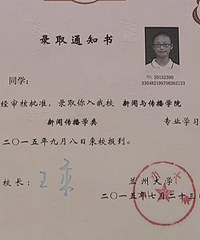 录取通知书
同学：
经审核批准，录取你入我校 新闻与传播学院
新闻传播学类 专业学习
二〇一五年九月八日来校报到。
校长：
兰州大学
二〇一五年七月二十日